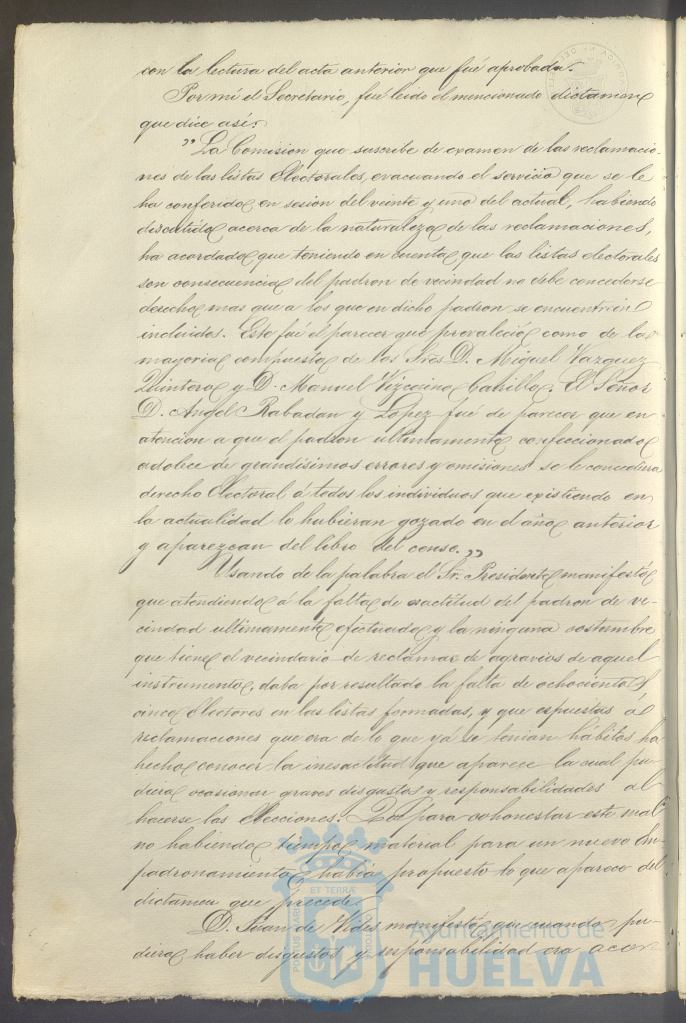 con la lectura del acta anterior que fué aprobada.
Por mí el Secretario, fué leido el mencionado dictamen
que dice así:
"La Comision que suscribe de examen de las reclamacio-
nes de las listas Electorales, evacuando el servicio que se le
ha conferido en sesion del veinte y uno del actual, habiendo
discutido acerca de la naturaleza de las reclamaciones,
ha acordado que teniendo en cuenta que las listas electorales
son consecuencia del padron de vecindad no debe concederse
derecho mas que a los que en dicho padron se encuentren
incluidos. Este fué el parecer que prevaleció como de la
mayoria compuesta de los Sres D. Miguel Vazquez
Quintero y D. Manuel Vizcaino Carrillo. El Señor
D. Angel Rabadan y Lopez fué de parecer que en
atencion a que el padron ultimamente confeccionado
adolece de grandísimos errores y omisiones se le concediera
derecho Electoral á todos los individuos que existiendo en
la actualidad lo hubieran gozado en el año anterior
y aparezcan del libro del censo."
Usando de la palabra el Sr. Presidente manifestó
que atendiendo á la falta de exactitud del padron de ve-
cindad ultimamente efectuado y la ninguna costumbre
que tiene el vecindario de reclamar de agravios de aquel
instrumento, daba por resultado la falta de ochocientos
cinco Electores en las listas formadas, y que espuestas á
reclamaciones que era de lo que yá se tenian hábitos ha
hecho conocer la inesactitud que aparece la cual pu-
diera ocasionar graves disgustos y responsabilidades al
hacerse las Elecciones. Que para cohonestar este mal
no habiendo tiempo material para un nuevo Em-
padronamiento, habia propuesto lo que aparece del
dictamen que precede.
D. Juan de Vides manifestó que cuando pu-
diera haber disgustos y responsabilidad era acor
PORTUS MARIS
ET TERRÆ
CUSTODIA
Ayuntamiento de
HUELVA